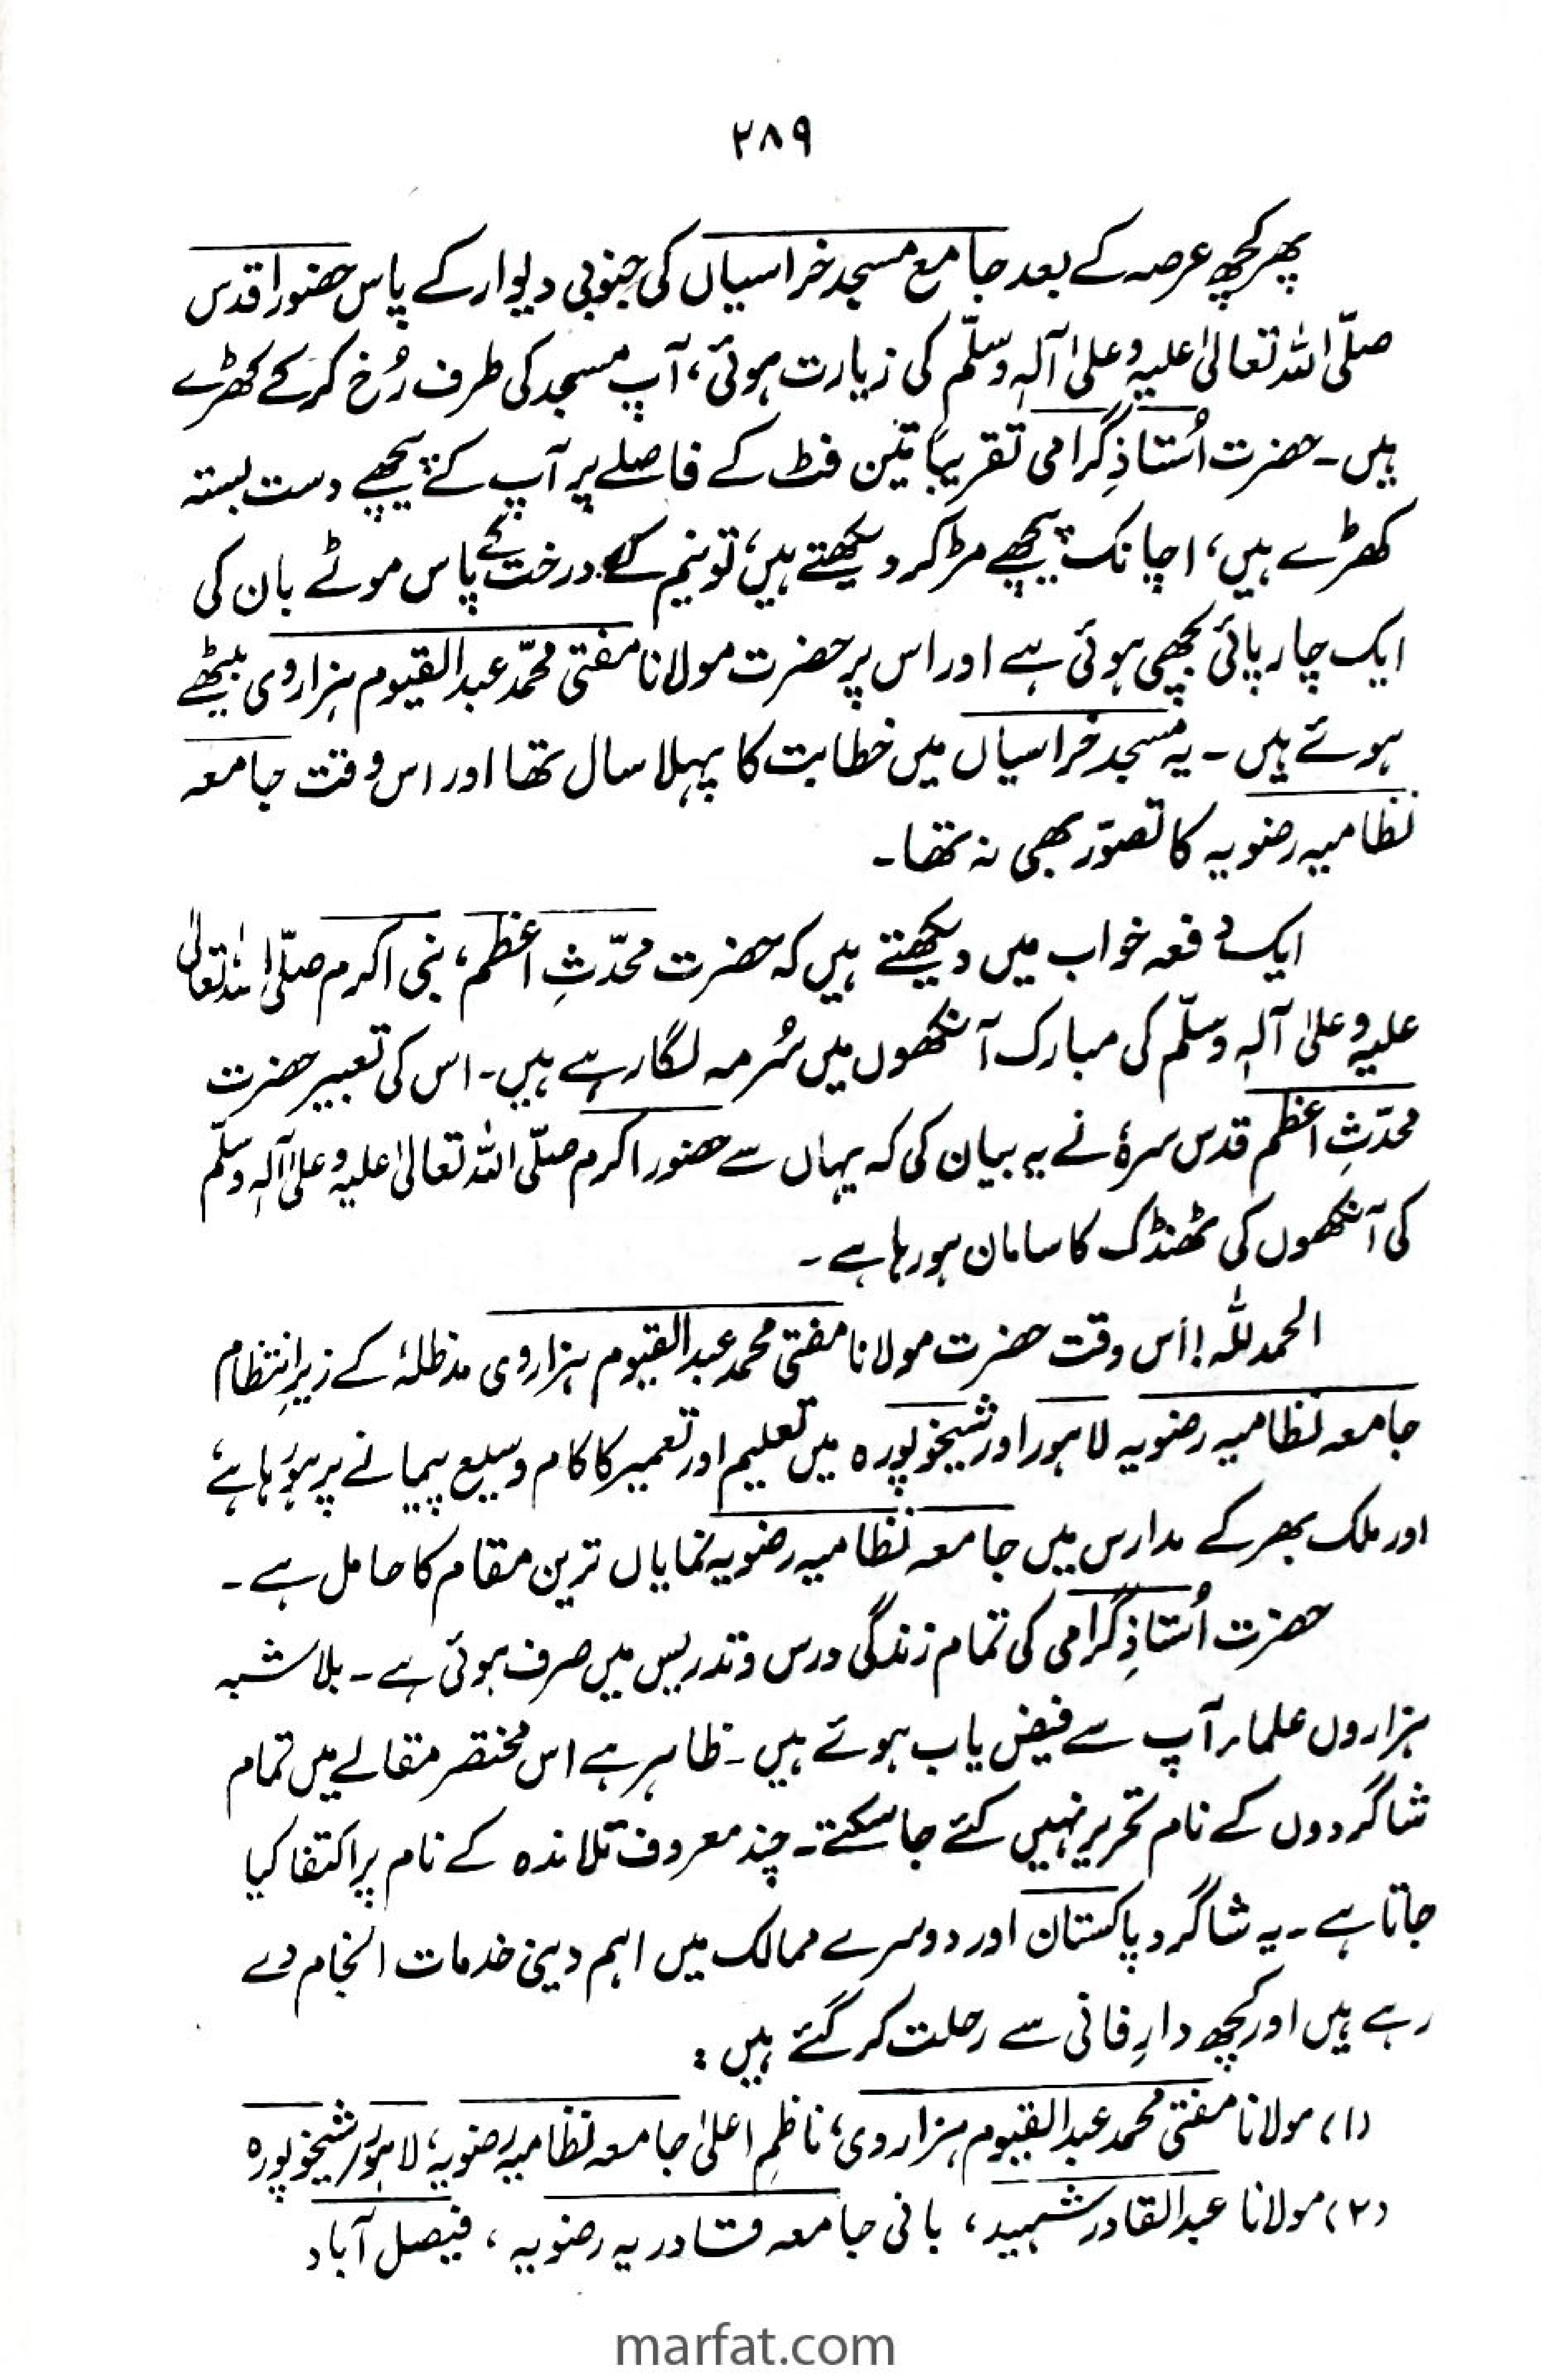 ۲۸۹
پھر کچھ عرصہ کے بعد جامع مسجد خراسیاں کی جنوبی دیوار کے پاس حضور اقدس
صلّی اللہ تعالیٰ علیہ وعلیٰ آلہٖ وسلّم کی زیارت ہوئی، آپ مسجد کی طرف رُخ کر کے کھڑے
ہیں۔ حضرت اُستاذِ گرامی تقریباً تین فٹ کے فاصلے پر آپ کے پیچھے دست بستہ
کھڑے ہیں، اچانک پیچھے مڑ کر دیکھتے ہیں، تو نیم کے درخت کے پاس موٹے بان کی
ایک چارپائی بچھی ہوئی ہے اور اس پر حضرت مولانا مفتی محمّد عبدالقیوم ہزاروی بیٹھے
ہوئے ہیں۔ یہ مسجد خراسیاں میں خطابت کا پہلا سال تھا اور اس وقت جامعہ
نظامیہ رضویہ کا تصوّر بھی نہ تھا۔
ایک دفعہ خواب میں دیکھتے ہیں کہ حضرت محدّثِ اعظم، نبی اکرم صلّی اللہ تعالیٰ
علیہ وعلیٰ آلہٖ وسلّم کی مبارک آنکھوں میں سُرمہ لگا رہے ہیں۔ اس کی تعبیر حضرت
محدّثِ اعظم قدس سرہٗ نے یہ بیان کی کہ یہاں سے حضور اکرم صلّی اللہ تعالیٰ علیہ وعلیٰ آلہٖ وسلّم
کی آنکھوں کی ٹھنڈک کا سامان ہو رہا ہے۔
الحمد للہ! اُس وقت حضرت مولانا مفتی محمد عبدالقیوم ہزاروی مدظلہٗ کے زیرِ انتظام
جامعہ نظامیہ رضویہ لاہور اور شیخوپورہ میں تعلیم اور تعمیر کا کام وسیع پیمانے پر ہو رہا ہے،
اور ملک بھر کے مدارس میں جامعہ نظامیہ رضویہ نمایاں ترین مقام کا حامل ہے۔
حضرت اُستاذِ گرامی کی تمام زندگی درس و تدریس میں صرف ہوئی ہے۔ بلاشبہ
ہزاروں علماء آپ سے فیض یاب ہوئے ہیں۔ ظاہر ہے اس مختصر مقالے میں تمام
شاگردوں کے نام تحریر نہیں کئے جا سکتے۔ چند معروف تلامذہ کے نام پر اکتفا کیا
جاتا ہے۔ یہ شاگرد پاکستان اور دوسرے ممالک میں اہم دینی خدمات انجام دے
رہے ہیں اور کچھ دارِ فانی سے رحلت کر گئے ہیں:
(۱) مولانا مفتی محمد عبدالقیوم ہزاروی، ناظمِ اعلیٰ جامعہ نظامیہ رضویہ، لاہور، شیخوپورہ
(۲) مولانا عبدالقادر شہید، بانی جامعہ قادریہ رضویہ، فیصل آباد
marfat.com